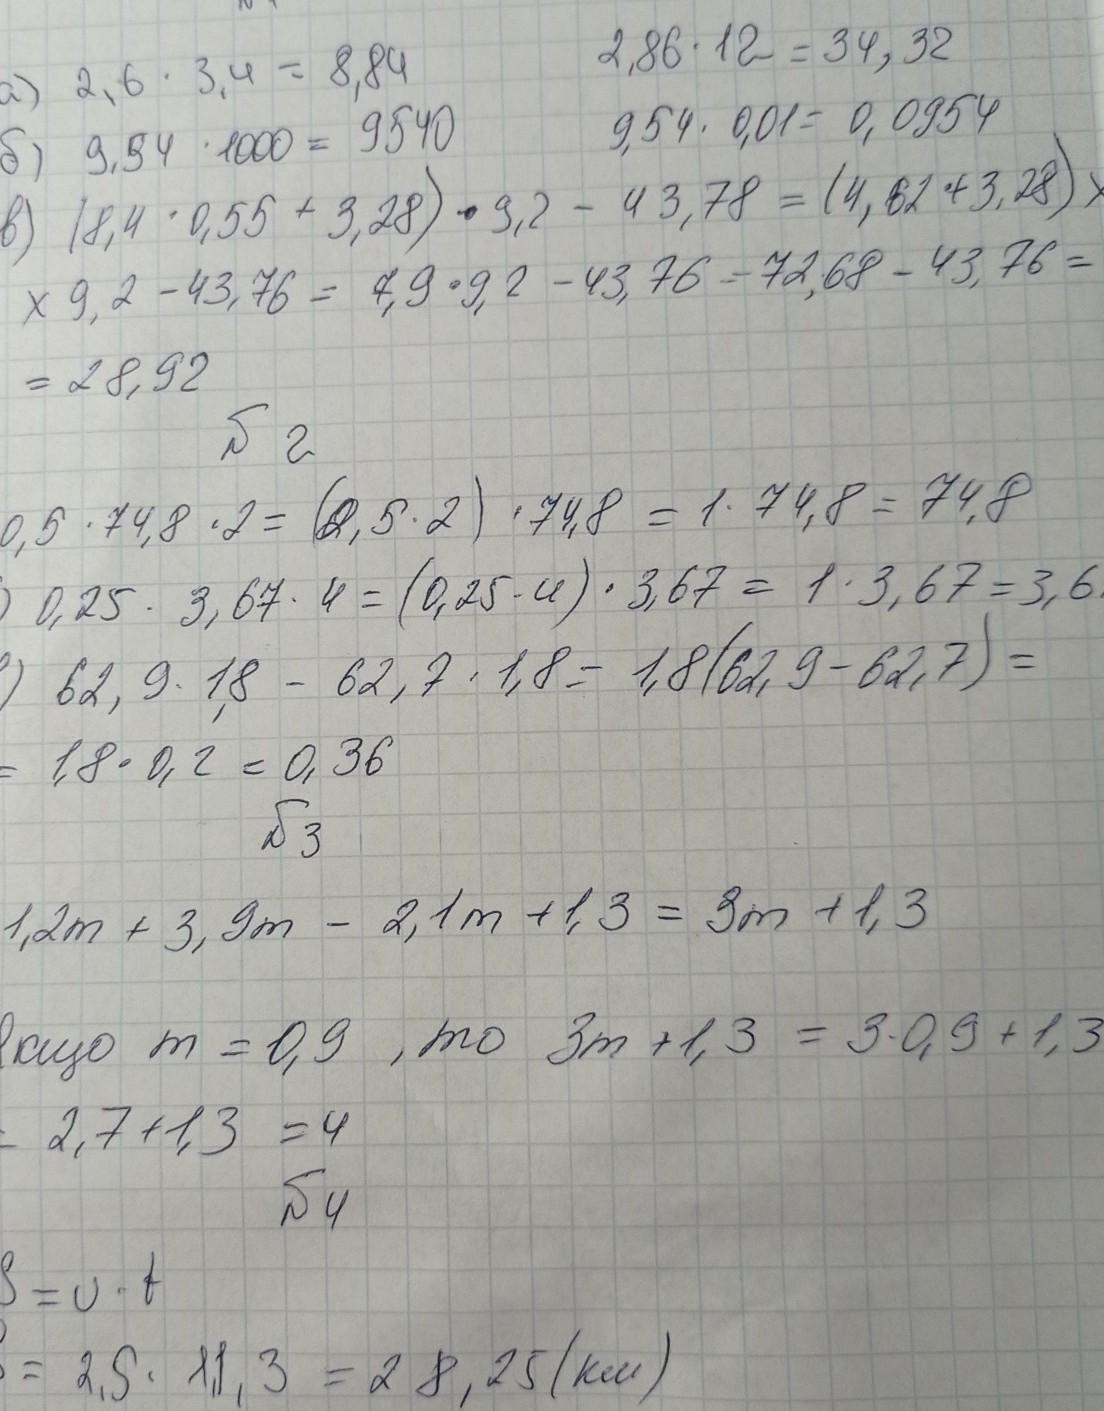 а) 2,6 · 3,4 = 8,84 2,86 · 12 = 34,32
б) 9,54 · 1000 = 9540 9,54 · 0,01 = 0,0954
в) (8,4 · 0,55 + 3,28) · 9,2 - 43,78 = (4,62 + 3,28) x
x 9,2 - 43,76 = 7,9 · 9,2 - 43,76 = 72,68 - 43,76 =
= 28,92
№ 2
0,5 · 74,8 · 2 = (0,5 · 2) · 74,8 = 1 · 74,8 = 74,8
) 0,25 · 3,67 · 4 = (0,25 · 4) · 3,67 = 1 · 3,67 = 3,6
) 62,9 · 1,8 - 62,7 · 1,8 = 1,8(62,9 - 62,7) =
= 1,8 · 0,2 = 0,36
№ 3
1,2m + 3,9m - 2,1m + 1,3 = 3m + 1,3
Якщо m = 0,9 , то 3m + 1,3 = 3 · 0,9 + 1,3
= 2,7 + 1,3 = 4
№ 4
S = υ · t
S = 2,5 · 11,3 = 28,25 (км)